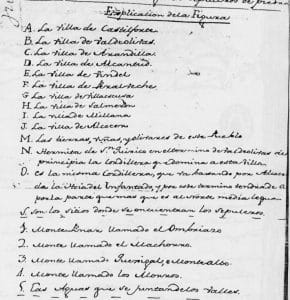 Explicacion dela Figura
A. La Villa de Castilforte
B. La Villa de Valdeolivas
C. La Villa de Arandilla
D. La Villa de Alcantud
E. La Villa de Vindel
F. La Villa de Arralveche
G La Villa de Villaescusa
H La Villa de Salmeron
I. La Villa de Millana
J. La Villa de Alcocer
M. Las tierras, viñas, y olivares de este Pueblo
N. Hermita de Sn Quirico en eltermino de Valdeolivas de
principia la Cordillera que domina a esta Villa
O. es la misma Cordillera, que va bajando por
da la Hoia del Infantado, y por este termino tendra de
por la parte que mas que es al Norte media legua
S. son los sitios donde se encuentran los Sepulcros.
1. Monte llamado el
2. Monte llamado el Machorro.
3. Monte llamado
4. Monte llamado los Morros.
5. Las Aguas que se juntan delos Valles.